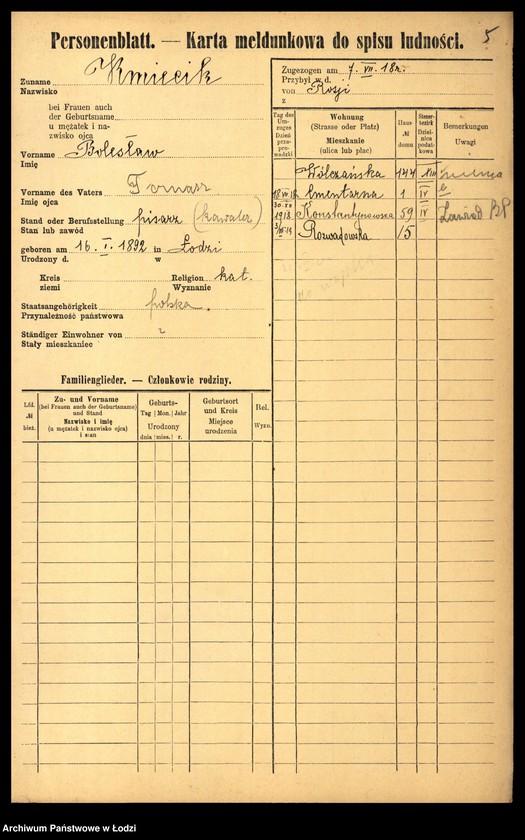 Personenblatt. — Karta meldunkowa do spisu ludności.
5
Zuname Kmiecik
Nazwisko
bei Frauen auch
der Geburtsname
u mężatek i na-
zwisko ojca
Vorname Bolesław
Imię
Vorname des Vaters Tomasz
Imię ojca
Stand oder Berufsstellung pisarz (kawaler)
Stan lub zawód
geboren am 16. I. 1892 in Łodzi
Urodzony d. w
Kreis Religion kat.
ziemi Wyznanie
Staatsangehörigkeit polska.
Przynależność państwowa
Ständiger Einwohner von
Stały mieszkaniec z
Familienglieder. — Członkowie rodziny.
Lfd. № bież.
Zu- und Vorname
(bei Frauen auch der Geburtsname)
und Stand
Nazwisko i imię
(u mężatek i nazwisko ojca)
i stan
Geburts-
Tag Mon. Jahr
Urodzony
dnia mies. r.
Geburtsort
und Kreis
Miejsce
urodzenia
Rel.
Wyzn.
Zugezogen am 7. VII. 18 r.
Przybył w d.
von Rosji
z
Tag des Um-zuges Dzień prze-pro-wadzki
Wohnung
(Strasse oder Platz)
Mieszkanie
(ulica lub plac)
Haus- № domu
Steuer-bezirk Dziel-nica podat-kowa
Bemerkungen
Uwagi
Wólczańska 144 VIII
18 VII 18 Cmentarna 1 IV
30 XII 1918 Konstantynowska 59 IV Zawód BP
Rozwadowska 15
Archiwum Państwowe w Łodzi